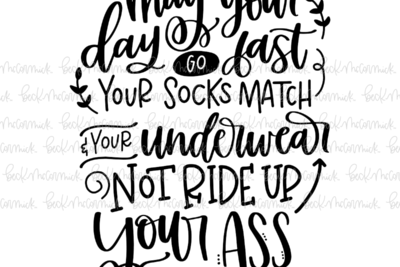 may your
day GO fast
YOUR SOCKS MATCH
& YOUR underwear
NOT RIDE UP
your ASS